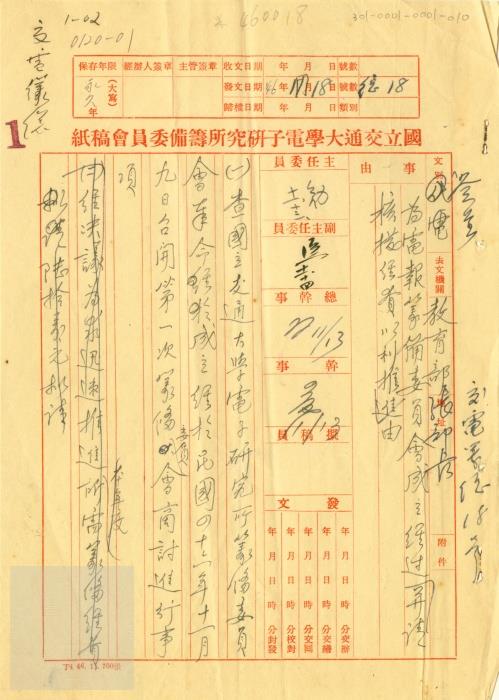 1-02
0120-01
460018
301-0001-0001-010
交電籌總
1
保存年限 經辦人簽章 主管簽章 收文日期 年 月 日 號數
永久年 (大寫) 發文日期 46年 11月 18日 號數 總18
歸檔日期 年 月 日 類別
國立交通大學電子研究所籌備委員會稿紙
文別 代電
去文機關 教育部張部長
地址
附件
交電籌總18號
事由
為電報籌備委員會成立經過并請
核撥經費以利推進由
主任委員
副主任委員
總幹事
11/13
幹事
11/13
擬稿員
發文
年 月 日 時 分交辦
年 月 日 時 分交繕
年 月 日 時 分交回
年 月 日 時 分校對
年 月 日 時 分封發
(一)查國立交通大學電子研究所籌備委員
會奉令組織成立經於民國四十六年十一月
九日召開第一次籌備委員會商討進行事
項
決議為求迅速推進所需籌備經費
本年度
陸拾萬元
T4 46. 11. 200張